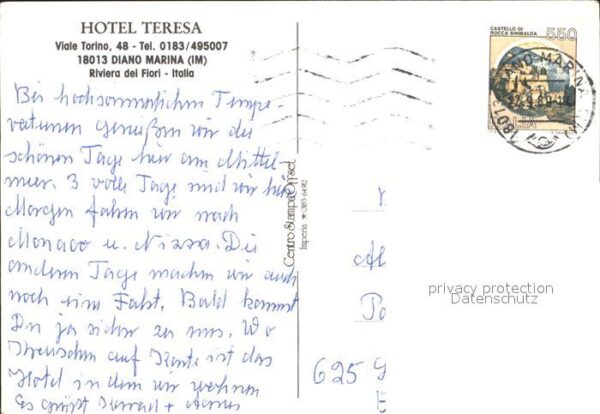 HOTEL TERESA
Viale Torino, 48 - Tel. 0183/495007
18013 DIANO MARINA (IM)
Riviera dei Fiori - Italia
Bei hochsommerlichen Tempe-
raturen genießen wir die
schönen Tage hier am Mittel-
meer. 3 volle Tage sind wir hier
Morgen fahren wir nach
Monaco u. Nizza. Die
anderen Tage machen wir auch
noch eine Fahrt. Bald kommst
Du ja sicher zu uns. Wo
Kreuzchen auf Karte ist das
Hotel in dem wir wohnen
Es grüßt Konrad +
Centro Stampa Offset
Imperia
CASTELLO DI
ROCCA SINIBALDA
550
ITALIA
DIANO MARINA
Al
Po
625 g
E
privacy protection
Datenschutz